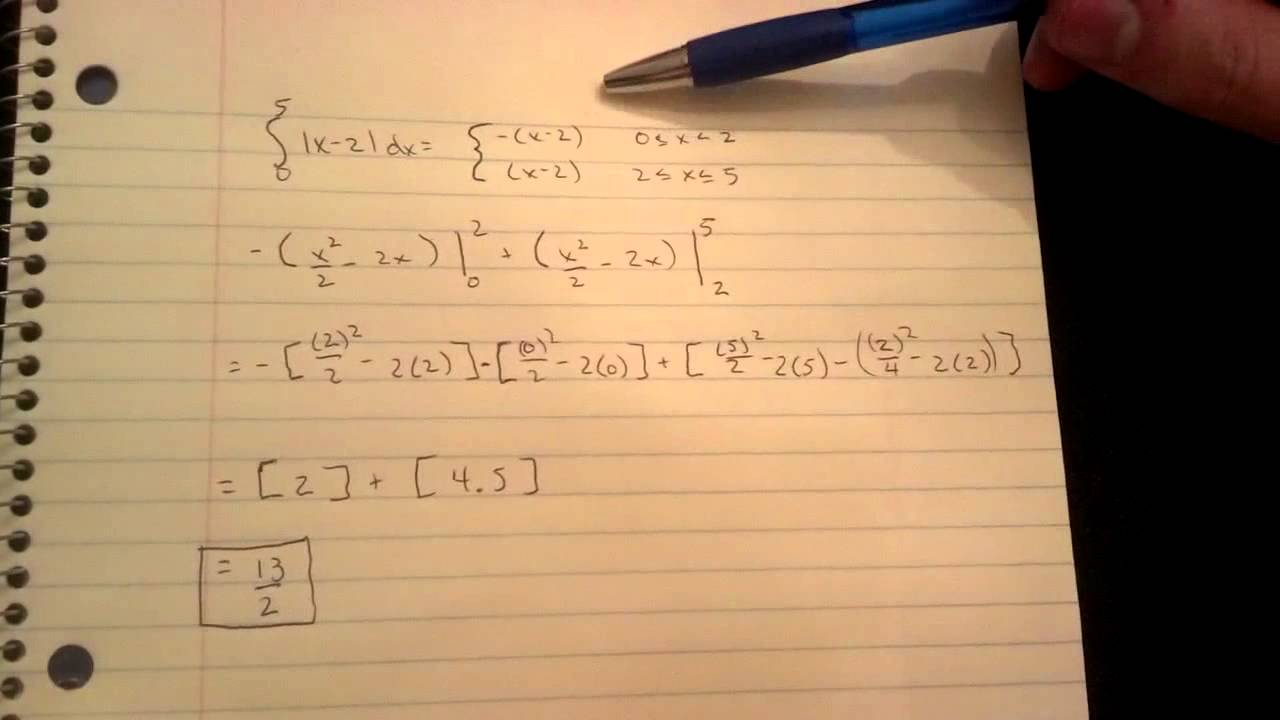 ∫₀⁵ |x-2| dx = { -(x-2) 0 ≤ x < 2
(x-2) 2 ≤ x ≤ 5
-(x²/2 - 2x) |₀² + (x²/2 - 2x) |₂⁵
= -[(2)²/2 - 2(2)] - [(0)²/2 - 2(0)] + [(5)²/2 - 2(5) - ((2)²/4 - 2(2))]
= [2] + [4.5]
= 13/2